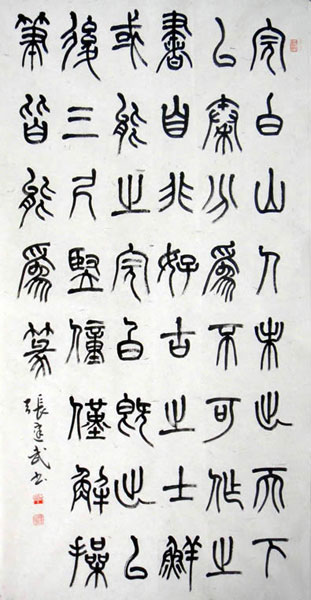 完白山人未出而下
以秦分為不可作之
書自非好古之士鮮
或能之完白既出以
後三尺豎僮僅解操
筆皆能為篆
張武書